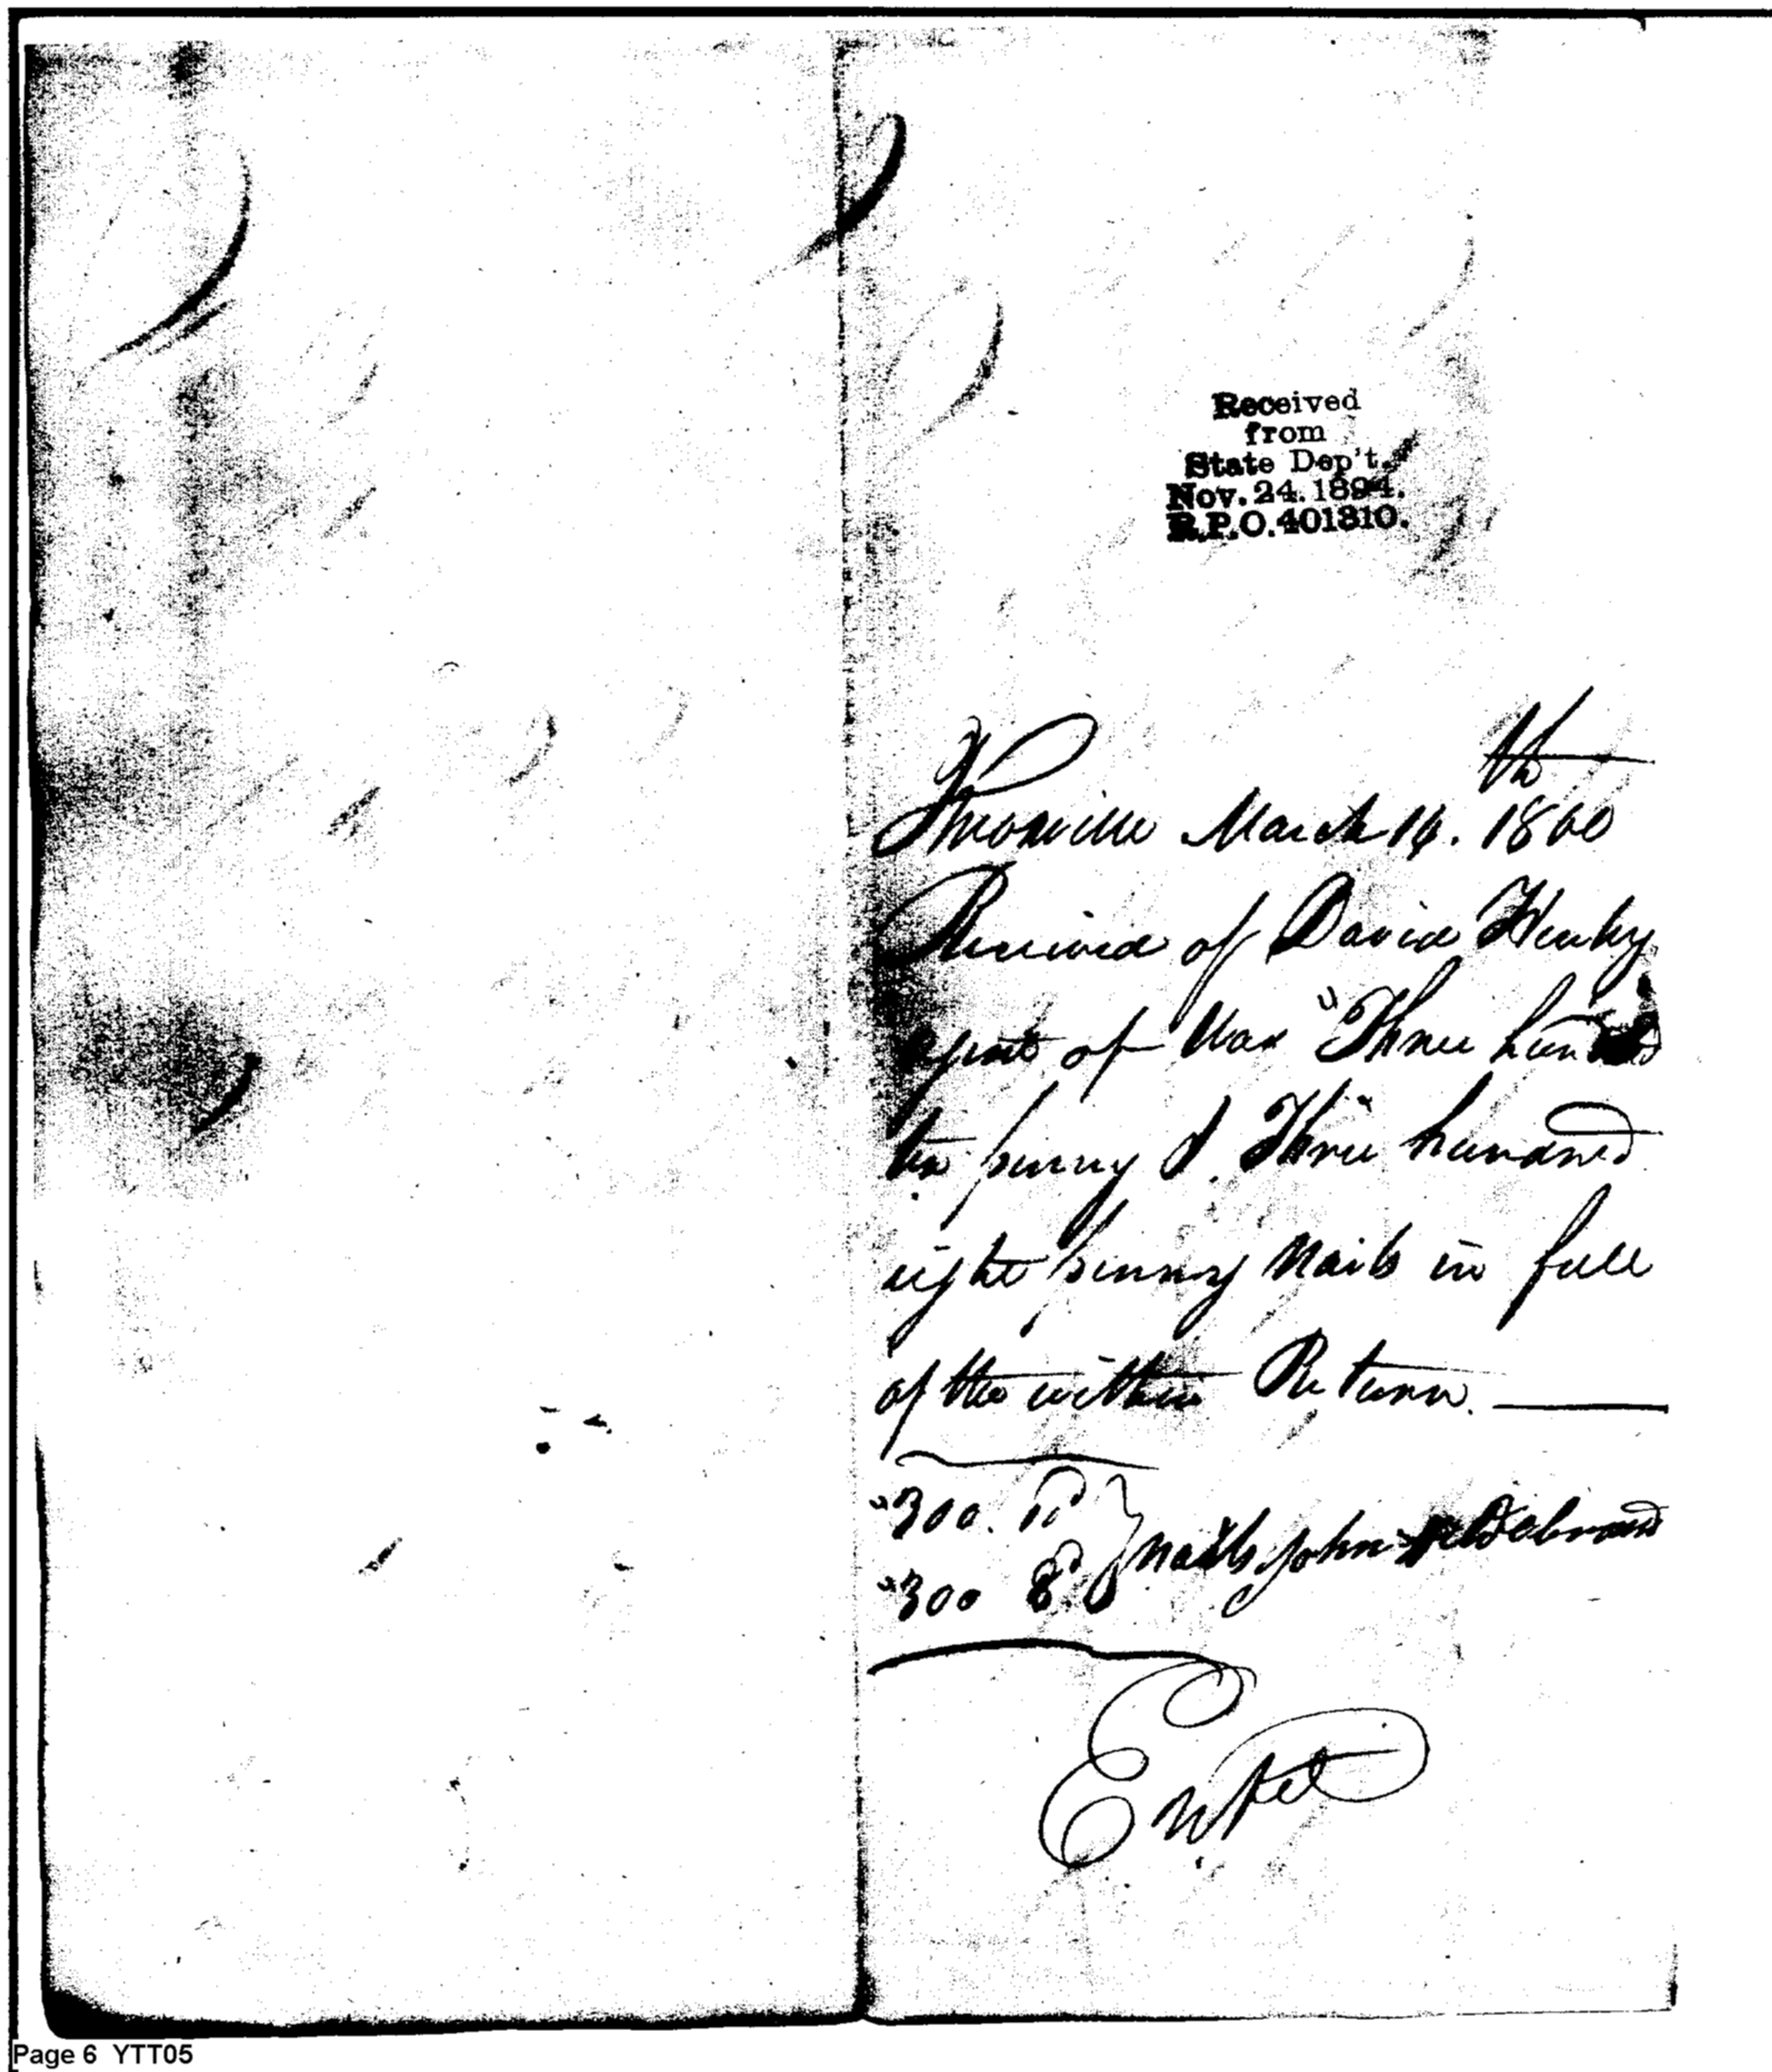 Received
from
State Dep't.
Nov. 24. 1894.
R.P.O. 401810.
th
Knoxville March 14. 1800
Received of David Henley
agent of War "Three hundred
ten penny & Three hundred
eight penny Nails in full
of the within Return.
"300. 10d
"300 8d } Nails John
Page 6 YTT05